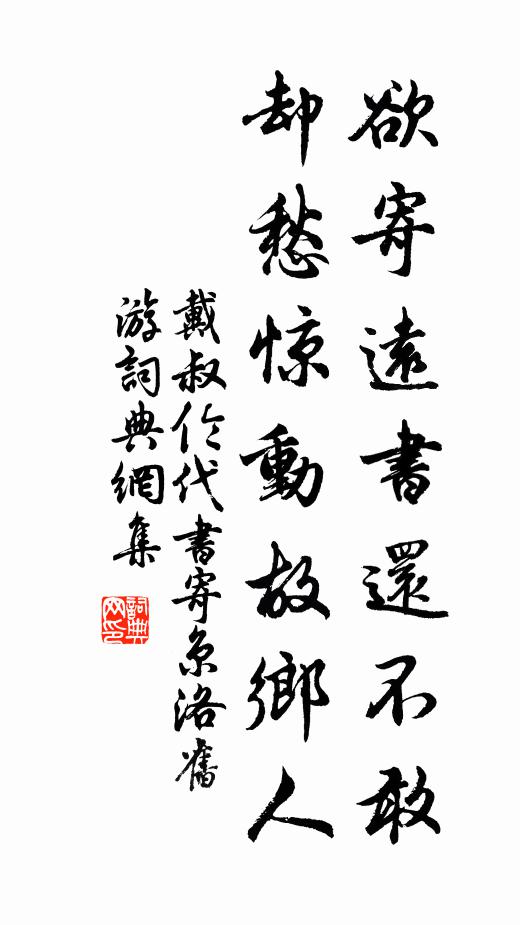 欲寄遠書還不敢
却愁惊動故鄉人
戴叔伦代書寄京洛舊
游詞典網集
詞典网印